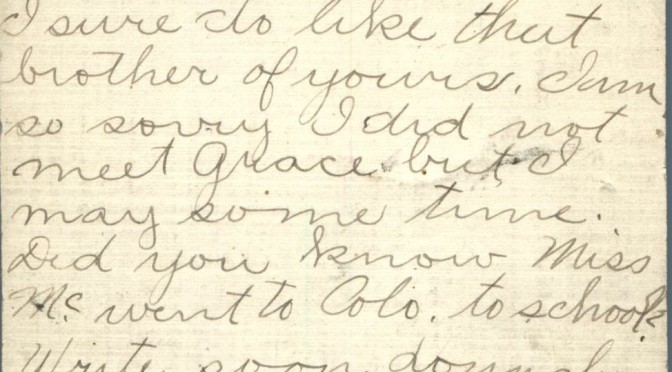 I sure do like that
brother of yours. I am
so sorry I did not
meet Grace but I
may some time.
Did you know Miss
Mc. went to Colo. to school?
Write soon